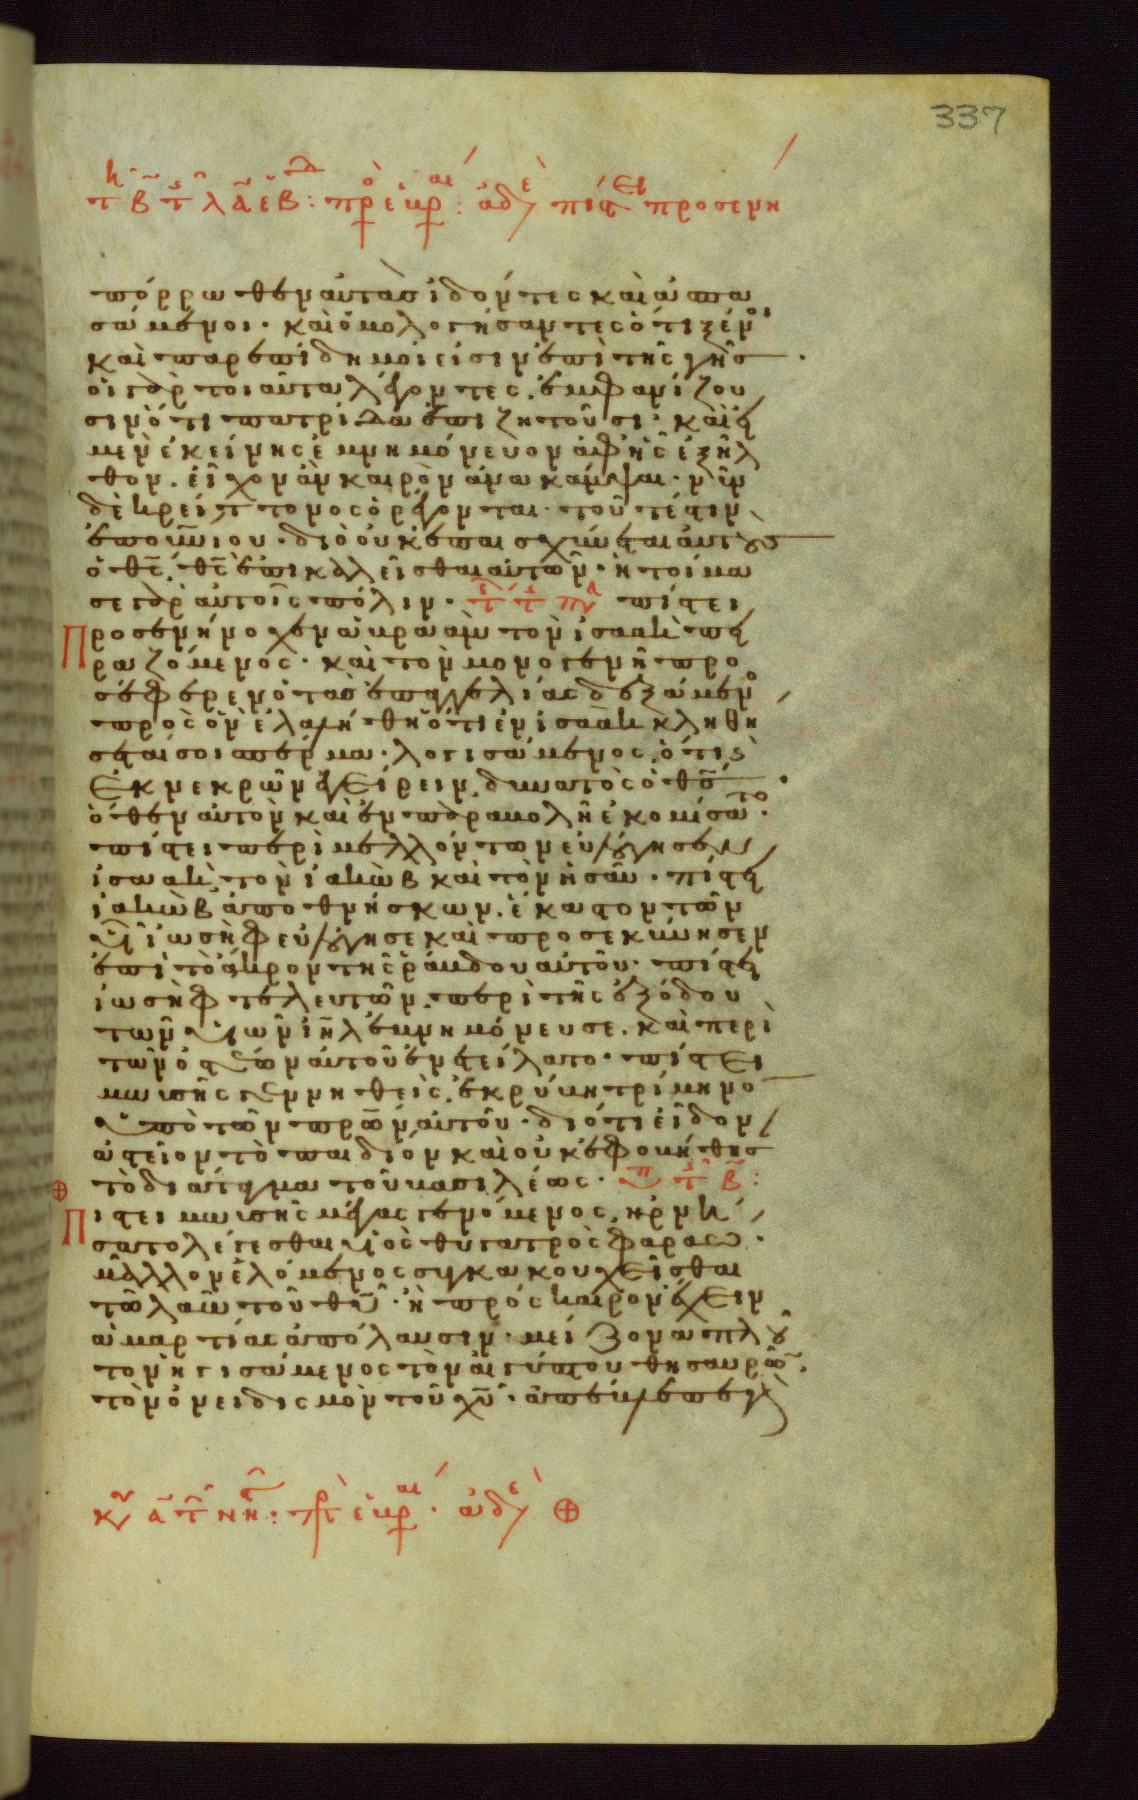 337
πόρρωθεν αὐτὰς ἰδόντες καὶ ἀσπα
σάμενοι · καὶ ὁμολογήσαντες ὅτι ξένοι
καὶ παρεπίδημοί εἰσιν ἐπὶ τῆς γῆς ·
οἱ γὰρ τοιαῦτα λέγοντες, ἐμφανίζου
σιν ὅτι πατρίδα ἐπιζητοῦσι · καὶ εἰ
μεν ἐκείνης ἐμνημόνευον ἀφ' ἧς ἐξῆλ
θον, εἶχον ἂν καιρὸν ἀνακάμψαι · νῦν
δὲ κρείττονος ὀρέγονται · τοῦτέστιν
ἐπουνίου · διὸ οὐκ ἐπαισχύνεται αὐτοὺς
ὁ θς, θς ἐπικαλεῖσθαι αὐτῶν · ἡτοίμα
σε γὰρ αὐτοῖς πόλιν · πίστει
Προσενήνοχεν ἀβραὰμ τὸν ἰσαὰκ πει
ραζόμενος · καὶ τὸν μονογενῆ προ
σέφερεν ὁ τὰς ἐπαγγελίας δεξάμενος
πρὸς ὃν ἐλαλήθη ὅτι ἐν ἰσαὰκ κληθή
σεταί σοι σπέρμα · λογισάμενος, ὅτι
ἐκ νεκρῶν ἐγείρειν δυνατὸς ὁ θς ·
ὅθεν αὐτὸν καὶ ἐν παραβολῆ ἐκομίσατο ·
πίστει περὶ μελλόντων εὐλόγησεν
ἰσαὰκ τὸν ἰακὼβ καὶ τὸν ἠσαῦ · πίστει
ἰακὼβ ἀποθνήσκων, ἕκαστον τῶν
υἱῶν ἰωσὴφ εὐλόγησε καὶ προσεκύνησεν
ἐπὶ τὸ ἄκρον τῆς ῥάβδου αὐτοῦ · πίστει
ἰωσὴφ τελευτῶν, περὶ τῆς ἐξόδου
τῶν υἱῶν ιηλ ἐμνημόνευσε, καὶ περὶ
τῶν ὀστέων αὐτοῦ ἐνετείλατο · πίστει
μωϋσῆς γεννηθεὶς, ἐκρύβη τρίμηνο
ὑπὸ τῶν πρων αὐτοῦ · διότι εἶδον
ἀστεῖον τὸ παιδίον καὶ οὐκ ἐφοβήθησ
τὸ διάταγμα τοῦ βασιλέως ·
Πίστει μωϋσῆς μέγας γενόμενος, ἠρνή
σατο λέγεσθαι υἱὸς θυγατρὸς φαραώ ·
μᾶλλον ἑλόμενος συγκακουχεῖσθαι
τῶ λαῶ τοῦ θυ · ἢ πρόσκαιρον ἔχειν
ἁμαρτίας ἀπόλαυσιν · μείζονα πλοῦ
τον ἡγισάμενος τῶν αἰγύπτου θησαυρῶν,
τὸν ὀνειδισμὸν τοῦ χυ · ἀπέβλεπε γὰρ